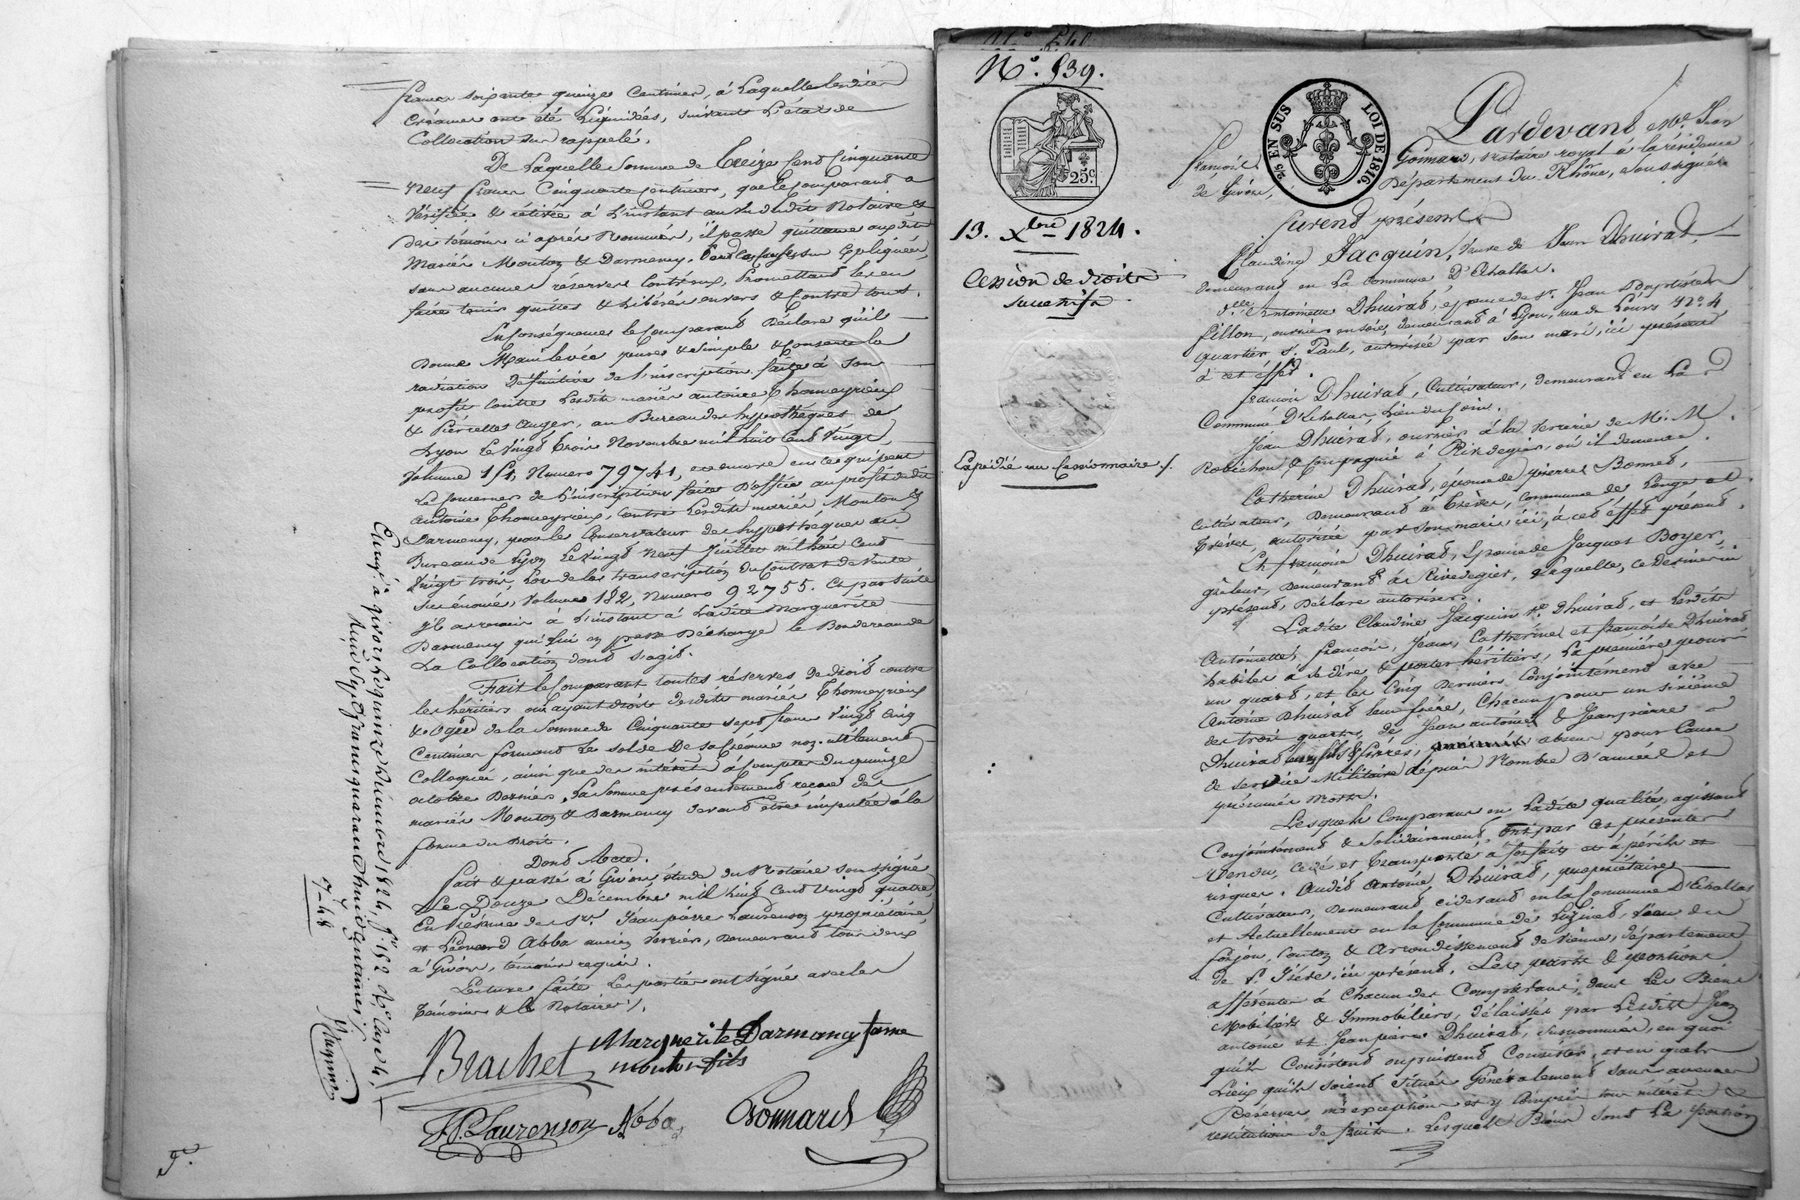 francs soixante quinze centimes, à laquelle lesdites
Créances ont été liquidées, suivant l'état de
Collocation sus rappelé.
De laquelle somme de treize cent cinquante
neuf francs cinquante centimes, que le comparant a
vérifiée & retirée à l'instant au vu dudit Notaire &
des témoins ci après nommés, il passe quittance auxdits
mariés Mouton & Darmency,
sans aucunes réserves contr'eux, promettant les en
faire tenir quittes & libérés envers & contre tous.
En conséquence le comparant déclare qu'il
donne Mainlevée pure & simple & consent la
radiation définitive de l'inscription faite à son
profit contre lesdits mariés antoine Thomeyrieux
& Pierrette Auger, au Bureau des hypothèques de
Lyon le vingt trois Novembre mil huit cent vingt,
Volume 151, Numéro 79741, encore en ce qui peut
le concerner de l'inscription faite d'office au profit dudit
Antoine Thomeyrieux, contre lesdits mariés Mouton &
Darmency, par le Conservateur des hypothèques au
Bureau de Lyon le vingt neuf Juillet mil huit cent
vingt trois, lors de la transcription du Contrat de vente
sus énoncé, Volume 182, Numéro 92755. Et par suite
il a remis à l'instant à ladite Marguerite
Darmency qui lui en passe décharge le Bordereau de
la Collocation dont s'agit.
Fait le comparant toutes réserves de droit contre
les héritiers ou ayant droits desdits mariés Thomeyrieux
& Oger de la somme de cinquante sept francs vingt cinq
Centimes formant le solde de sa créance non utilement
Colloquée, ainsi que des intérêts à compter du quinze
octobre dernier, la somme présentement reçue des
mariés Mouton & Darmency devant être imputée à la
forme du Droit.
Dont Acte.
Fait & passé à Givors étude du Notaire soussigné
Le Douze Décembre mil huit cent vingt quatre,
En présence de Srs. Jean pierre Laurenson propriétaire,
et Léonard Abba ancien Verrier, demeurant tous deux
à Givors, témoins requis.
Lecture faite les parties ont signé avec les
témoins & le Notaire ./.
Brachet Marguerite Darmancy fame
mouton fils
J.P. Laurenson Abba Gonnard
Enregé à Givors le quinze décembre 1824, fo 152
Reçu Sept francs quarante huit centimes ./.
7-48
N°. 540
N°. 539.
25c.
25 EN SUS LOI DE 1816.
13. Xbre 1824.
Cession de droits
successifs
Expédié au Cessionnaire /.
Pardevant Me. Jean
François Gonnard, Notaire royal à la résidence
de Givors, Département du Rhône, soussigné
furent présents
Claudine Jacquin, veuve de Jean Dhuirat,
demeurant en la commune d'Echallas.
Dlle Antoinette Dhuirat, épouse de Sr. Jean Baptiste
Fillon, ouvrier en soies demeurant à Lyon, rue de l'ours N°. 4
quartier St. Paul, autorisée par son mari, ici présent
à cet effet.
françois Dhuirat, Cultivateur, demeurant en la
Commune d'Echallas, lieu du foin.
Jean Dhuirat, ouvrier à la verrerie de M. M.
Robichon & Compagnie à Rivedegier, où il demeure.
Catherine Dhuirat, épouse de pierre Bonnet,
cultivateur, demeurant à Trèves, commune de Longes et
Trèves, autorisée par son mari ici, à cet effet présent.
Et françoise Dhuirat, Epouse de Jacques Boyer,
grêleur, demeurant à Rivedegier, laquelle, ce dernier ici
présent, déclare autoriser.
Ladite Claudine Jacquin Ve Dhuirat, et lesdits
Antoinette, françois, Jean, Catherine et françoise Dhuirat
habiles à se dire & porter héritiers, la première pour
un quart, et les cinq derniers conjointement avec
Antoine Dhuirat leur frère, chacun pour un sixième
des trois quarts, de Jean antoine & Jean pierre
Dhuirat leurs fils & frères, absens pour cause
de service Militaire depuis Nombre d'années et
présumés morts.
Lesquels Comparans en ladite qualité, agissant
Conjointement & solidairement ont par ces présentes
Vendu, cédé et transporté à forfait et à périls et
risques. Audit Antoine Dhuirat, propriétaire
Cultivateur, demeurant cidevant en la Commune d'Echallas
et Actuellement en la Commune de Luzinay, lieu du
forjon, canton & arrondissement de Vienne, département
de l'Isère, ici présent. Les parts & portions
afférentes à chacun des Comparans, dans les Biens
Mobiliers & Immobiliers, délaissés par lesdits Jean
antoine et Jean pierre Dhuirat, susnommés, en quoi
qu'ils consistent ou puissent consister, et en quels
lieux qu'ils soient situés Généralement sans aucune
Réserve ni exception et y compris tous intérêts &
restitutions de fruits. Lesquels Biens sont la portion